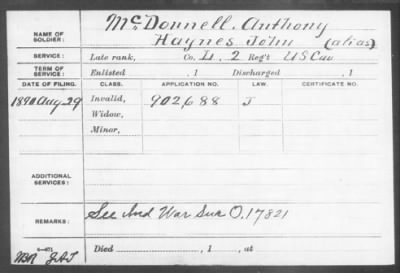 McDonnell, Anthony
NAME OF SOLDIER: Haynes John (alias)
SERVICE: Late rank, Co. L, 2 Reg't US Cav
TERM OF SERVICE: Enlisted , 1 Discharged , 1
DATE OF FILING. CLASS. APPLICATION NO. LAW. CERTIFICATE NO.
1890 Aug 29 Invalid, 902688 J
Widow,
Minor,
ADDITIONAL SERVICES:
REMARKS: See Ind War Sur O. 17821
Died , 1 , at